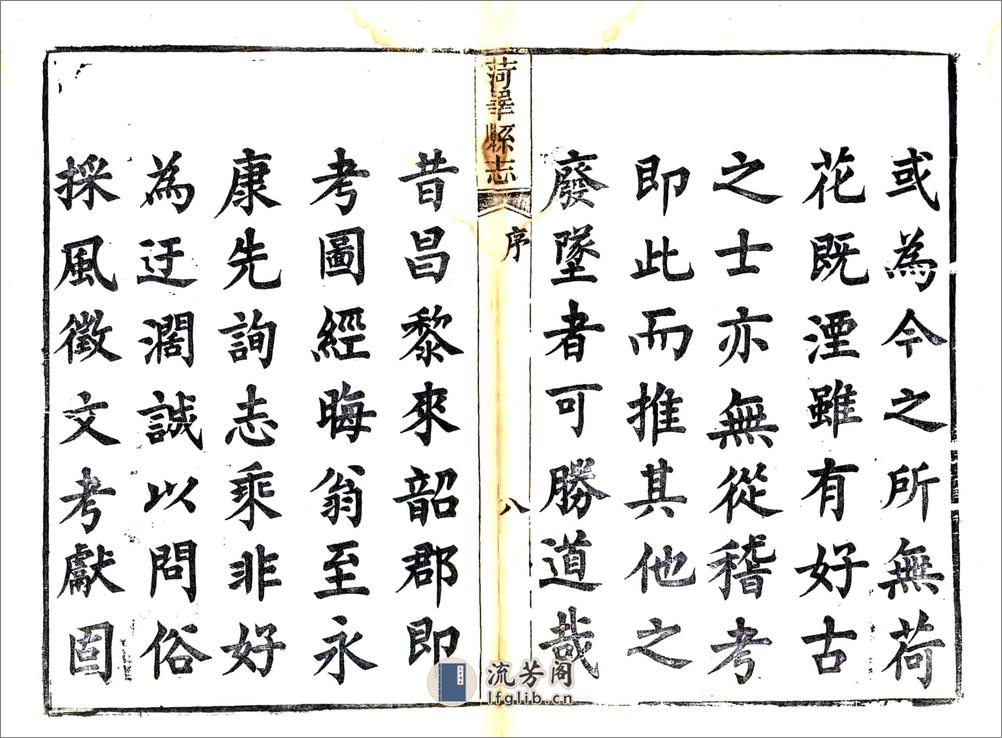 或為今之所無荷
花既湮雖有好古
之士亦無從稽考
即此而推其他之
廢墜者可勝道哉
菏澤縣志
序
八
昔昌黎來韶郡即
考圖經晦翁至永
康先詢志乘非好
為迂濶誠以問俗
採風徵文考獻固
流芳阁
lfglib.cn